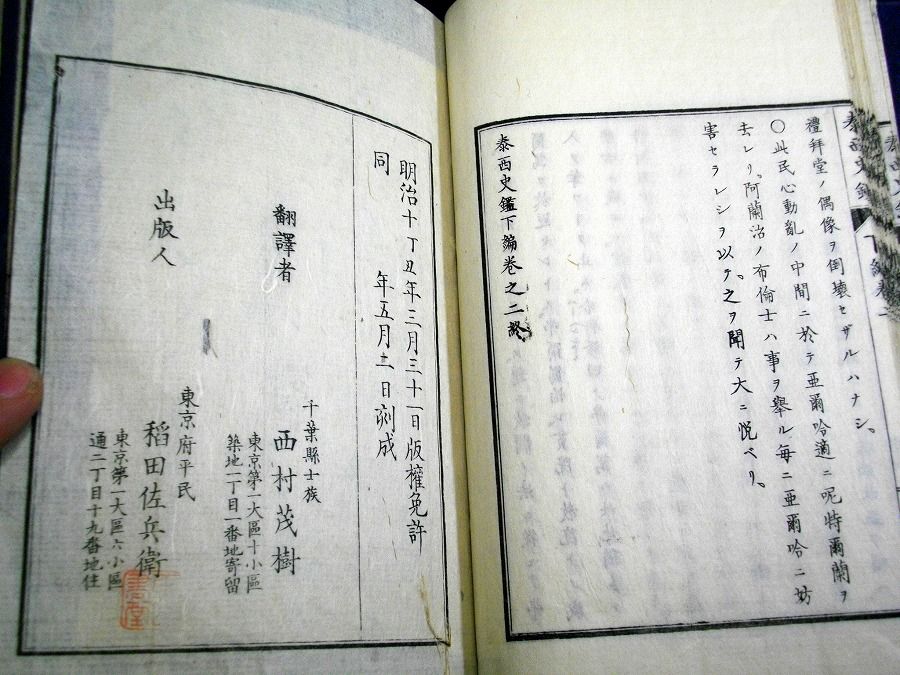 泰西史鑑
禮拜堂ノ偶像ヲ倒壞セザルハナシ。
〇此民心動亂ノ中間ニ於テ亞爾哈適ニ呢特爾蘭ヲ
去レリ。阿蘭治ノ布倫士ハ事ヲ舉ル每ニ亞爾哈ニ妨
害セラレシヲ以テ之ヲ聞テ大ニ悅ベリ。
泰西史鑑下篇卷之二終
明治十丁丑年三月三十一日版權免許
同 年五月 日刻成
千葉縣士族
翻譯者 西村茂樹
東京第一大區十小區
築地一丁目一番地寄留
東京府平民
出版人 稻田佐兵衛
東京第一大區六小區
通二丁目十九番地住